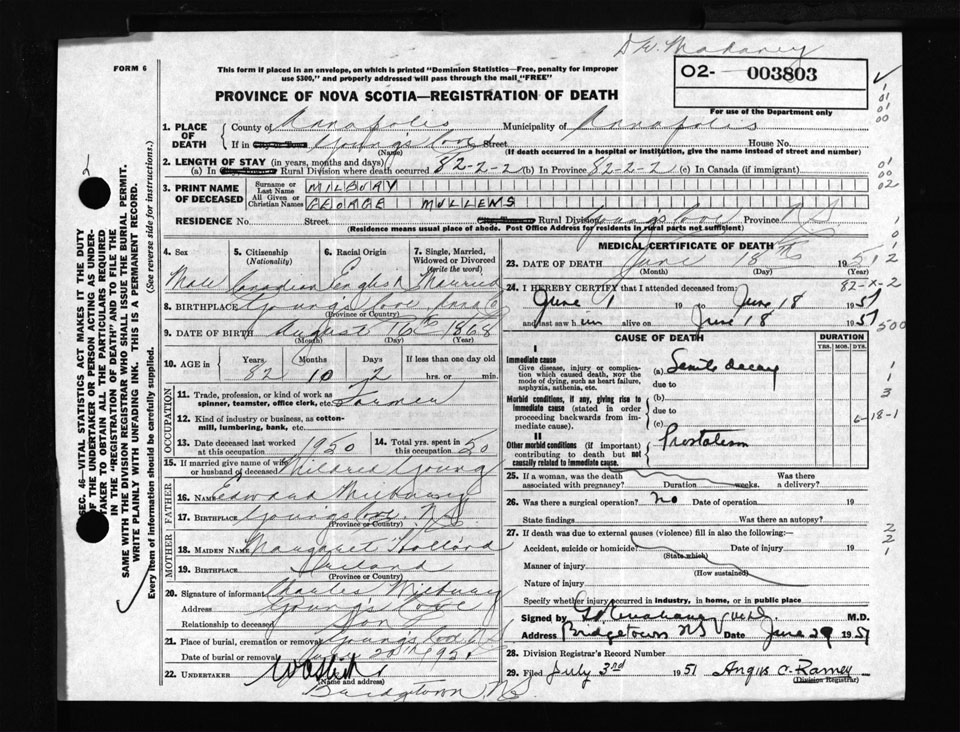 FORM 6
This form if placed in an envelope, on which is printed "Dominion Statistics—Free, penalty for improper
use $300," and properly addressed will pass through the mail "FREE"
O2- 003803
For use of the Department only
PROVINCE OF NOVA SCOTIA—REGISTRATION OF DEATH
1. PLACE OF DEATH County of Annapolis Municipality of Annapolis
If in Young's Cove Street House No.
(Name) (If death occurred in a hospital or institution, give the name instead of street and number)
2. LENGTH OF STAY (in years, months and days)
(a) In Rural Division where death occurred 82-2-2 (b) In Province 82-2-2 (c) In Canada (if immigrant)
3. PRINT NAME OF DECEASED Surname or Last Name MILBURY
All Given or Christian Names GEORGE MULLENS
RESIDENCE No. Street Rural Division Young's Cove Province NS
(Residence means usual place of abode. Post Office Address for residents in rural parts not sufficient)
4. Sex 5. Citizenship (Nationality) 6. Racial Origin 7. Single, Married, Widowed or Divorced (write the word)
Male Canadian English Married
8. BIRTHPLACE Young's Cove Anna Co
(Province or County)
9. DATE OF BIRTH August 16th 1868
(Month) (Day) (Year)
10. AGE in Years Months Days If less than one day old
82 10 2 hrs. or min.
OCCUPATION
11. Trade, profession, or kind of work as spinner, teamster, office clerk, etc. Farmer
12. Kind of industry or business, as cotton-mill, lumbering, bank, etc.
13. Date deceased last worked at this occupation 1950 14. Total yrs. spent in this occupation 50
15. If married give name of wife or husband of deceased Mildred Young
FATHER
16. Name Edward Milbury
17. Birthplace Youngs Cove NS
(Province or Country)
MOTHER
18. Maiden Name Margaret Holland
19. Birthplace Ireland
(Province or Country)
20. Signature of informant Charles Milbury
Address Young's Cove
Relationship to deceased Son
21. Place of burial, cremation or removal Young's Cove
Date of burial or removal 20th 1951
22. UNDERTAKER
Name and address
Bridgetown NS
MEDICAL CERTIFICATE OF DEATH
23. DATE OF DEATH June 18th 1951
(Month) (Day) (Year)
24. I HEREBY CERTIFY that I attended deceased from:
June 1 19 to June 18 1951
and last saw him alive on June 18 1951
CAUSE OF DEATH DURATION
YRS. MOS. DYS.
I
Immediate cause
Give disease, injury or complication which caused death, not the mode of dying, such as heart failure, asphyxia, asthenia, etc.
(a) Senile decay
due to
Morbid conditions, if any, giving rise to immediate cause (stated in order proceeding backwards from immediate cause).
(b)
due to
(c)
II
Other morbid conditions (if important) contributing to death but not causally related to immediate cause.
Prostatism
25. If a woman, was the death associated with pregnancy? Duration weeks. Was there a delivery?
26. Was there a surgical operation? no Date of operation 19
State findings Was there an autopsy?
27. If death was due to external causes (violence) fill in also the following:
Accident, suicide or homicide? Date of injury 19
(State which)
Manner of injury
(How sustained)
Nature of injury
Specify whether injury occurred in industry, in home, or in public place
Signed by M.D.
Address Bridgetown NS Date June 29 1951
28. Division Registrar's Record Number
29. Filed July 3rd 1951 Angus C. Ramey
(Division Registrar)
82-x-2
500
6-18-1
SEC. 46—VITAL STATISTICS ACT MAKES IT THE DUTY
OF THE UNDERTAKER OR PERSON ACTING AS UNDER-
TAKER TO OBTAIN ALL THE PARTICULARS REQUIRED
IN THE "REGISTRATION OF DEATH" AND TO FILE THE
SAME WITH THE DIVISION REGISTRAR WHO SHALL ISSUE THE BURIAL PERMIT.
WRITE PLAINLY WITH UNFADING INK. THIS IS A PERMANENT RECORD.
Every item of information should be carefully supplied. (See reverse side for instructions.)